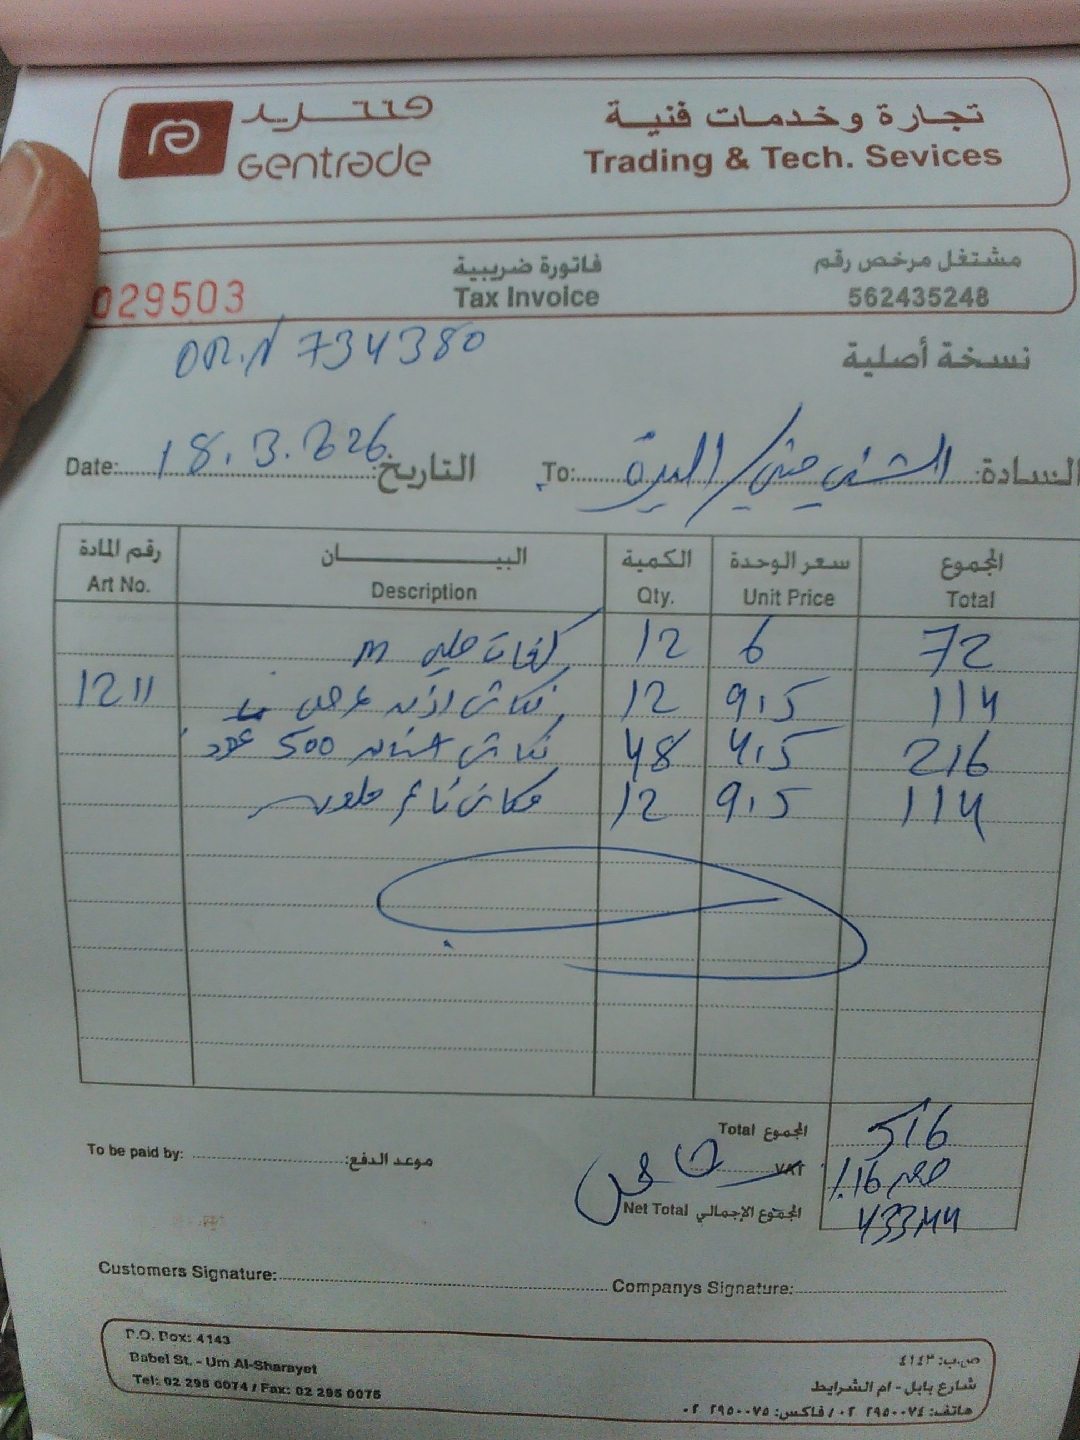 فنتريد
Gentrade
تجارة وخدمات فنية
Trading & Tech. Sevices
029503
فاتورة ضريبية
Tax Invoice
مشتغل مرخص رقم
562435248
OR.N 734380
نسخة أصلية
Date: 18.3.2026 التاريخ:
To: البيرة / السادة:
رقم المادة البيـــــان الكمية سعر الوحدة المجموع
Art No. Description Qty. Unit Price Total
M 12 6 72
1211 12 9.5 114
500 عدد 48 4.5 216
12 9.5 114
Total المجموع 516
VAT خصم 16%
Net Total المجموع الإجمالي 433.44
To be paid by: موعد الدفع:
Customers Signature: Companys Signature:
P.O. Box: 4143
Babel St. - Um Al-Sharayet
Tel: 02 295 0074 / Fax: 02 295 0075
ص.ب: ٤١٤٣
شارع بابل - ام الشرايط
هاتف: ٢٩٥٠٠٧٤ ٠٢ / فاكس: ٢٩٥٠٠٧٥ ٠٢